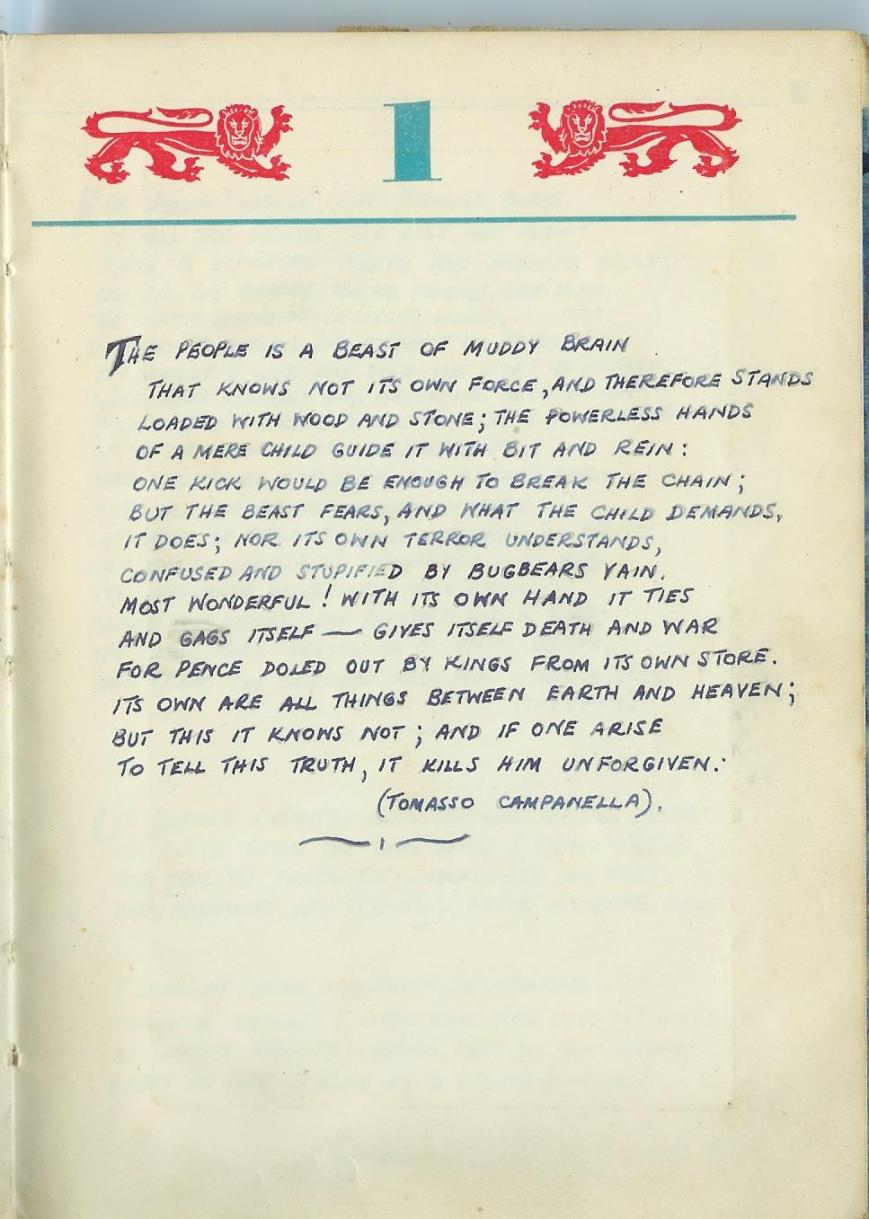 1
THE PEOPLE IS A BEAST OF MUDDY BRAIN
THAT KNOWS NOT ITS OWN FORCE, AND THEREFORE STANDS
LOADED WITH WOOD AND STONE; THE POWERLESS HANDS
OF A MERE CHILD GUIDE IT WITH BIT AND REIN:
ONE KICK WOULD BE ENOUGH TO BREAK THE CHAIN;
BUT THE BEAST FEARS, AND WHAT THE CHILD DEMANDS,
IT DOES; NOR ITS OWN TERROR UNDERSTANDS,
CONFUSED AND STUPIFIED BY BUGBEARS VAIN.
MOST WONDERFUL! WITH ITS OWN HAND IT TIES
AND GAGS ITSELF — GIVES ITSELF DEATH AND WAR
FOR PENCE DOLED OUT BY KINGS FROM ITS OWN STORE.
ITS OWN ARE ALL THINGS BETWEEN EARTH AND HEAVEN;
BUT THIS IT KNOWS NOT; AND IF ONE ARISE
TO TELL THIS TRUTH, IT KILLS HIM UNFORGIVEN.
(TOMASSO CAMPANELLA).